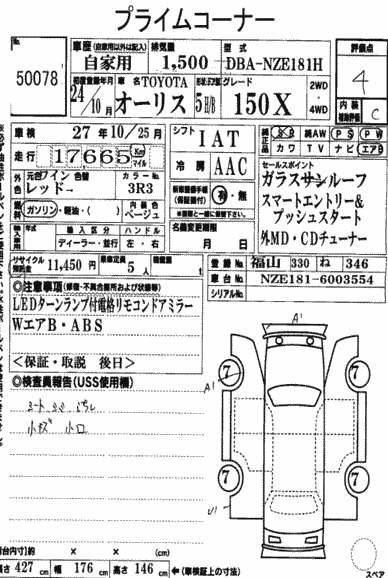 プライムコーナー
No.
50078
車歴 (自家用以外は記入) 排気量 型式
自家用 1,500 DBA-NZE181H
評価点
4
初度登録年月 車名 TOYOTA グレード
24/10月 オーリス 5 H/B 150X 2WD・4WD
内装補助評価 C
車検 27年10/25月 シフト IAT
純正品 カワ 純AW PS PW TV ナビ エアB
走行 17665 Km マイル
冷房 AAC
外色 元色 ワイン 色替 カラーNo.
レッド→ 3R3
セールスポイント
ガラスサンルーフ
スマートエントリー&
プッシュスタート
外MD・CDチューナー
燃料 ガソリン・軽油・( ) 内装色 ベージュ
新車整備手帳(保証書付) 有・無
※書類と一緒に保管下さい。
輸入車 年式 輸入区分 ハンドル
ディーラー・並行 左・右
名義変更期限
月 日
リサイクル預託金 11,450円 乗車定員 5人 積載量 t
登録No. 福山 330 ね 346
車台No. NZE181-6003554
シリアルNo.
◎注意事項 (修復・不具合箇所および状態等)
LEDターンランプ付電格リモコンドアミラー
WエアB・ABS
<保証・取説 後日>
◎検査員報告(USS使用欄)
小キズ 小凹
A'
A'
7 7
7 7
U1
(荷台内寸)約 × × (cm)
長さ 427 cm 幅 176 cm 高さ 146 cm ←(車両全体の寸法)
スペア